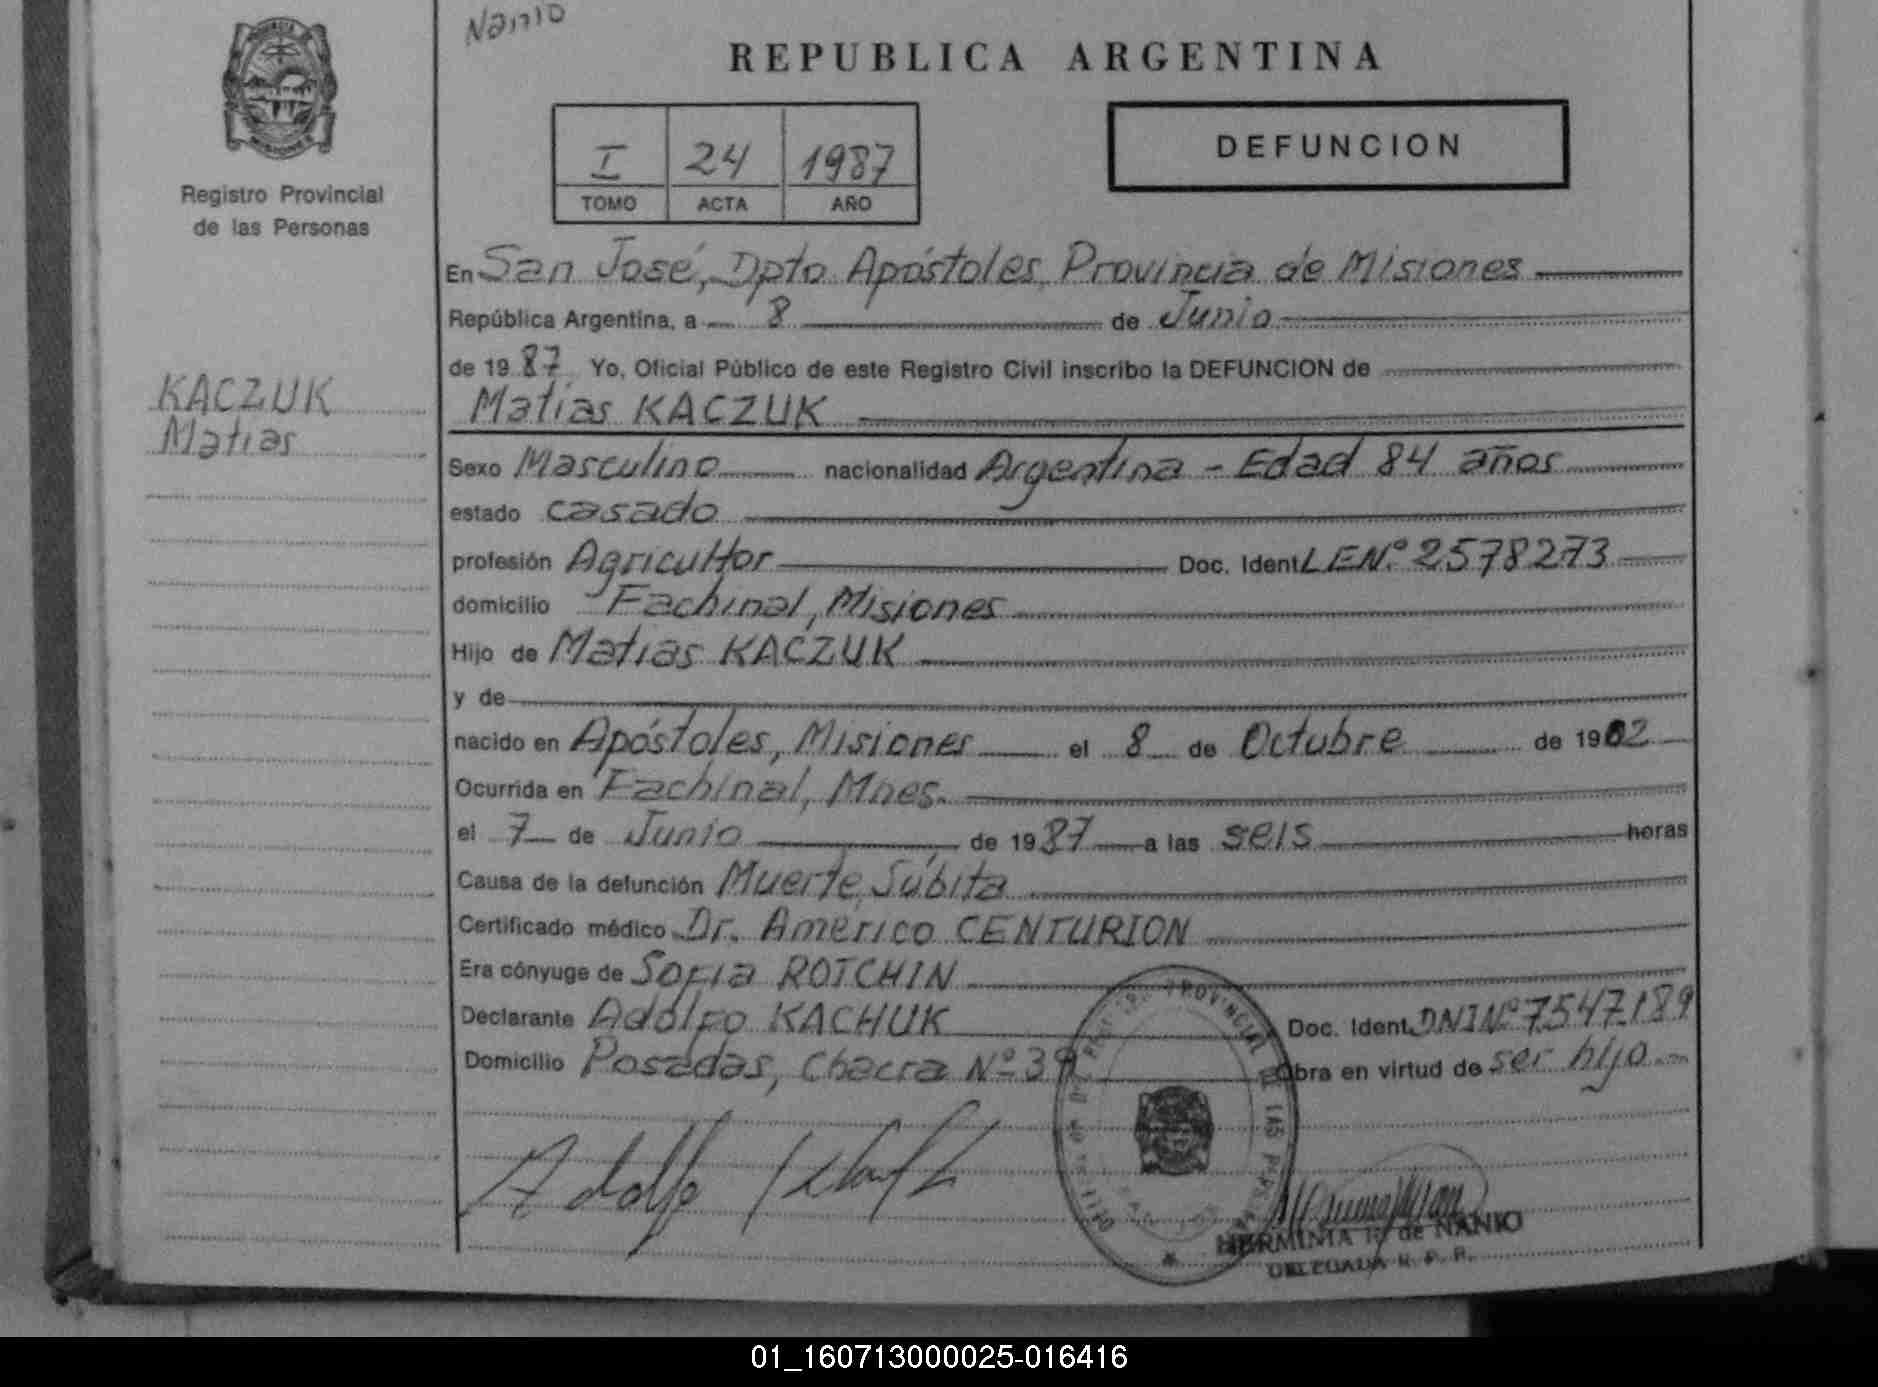 Nanio
REPUBLICA ARGENTINA
Registro Provincial
de las Personas
I 24 1987
TOMO ACTA AÑO
DEFUNCION
KACZUK
Matías
En San José, Dpto Apóstoles, Provincia de Misiones
República Argentina, a 8 de Junio
de 1987 Yo, Oficial Público de este Registro Civil inscribo la DEFUNCION de
Matías KACZUK
Sexo Masculino nacionalidad Argentina - Edad 84 años
estado casado
profesión Agricultor Doc. Ident LENº 2578273
domicilio Fachinal, Misiones
Hijo de Matías KACZUK
y de
nacido en Apóstoles, Misiones el 8 de Octubre de 1902
Ocurrida en Fachinal, Mnes.
el 7 de Junio de 1987 a las seis horas
Causa de la defunción Muerte Súbita
Certificado médico Dr. Américo CENTURION
Era cónyuge de Sofía ROTCHIN
Declarante Adolfo KACHUK Doc. Ident DNINº 7547189
Domicilio Posadas, Chacra Nº 39 Obra en virtud de ser hijo
Adolfo
HERMINIA R. de NANIO
DELEGADA R. P. P.
01_160713000025-016416